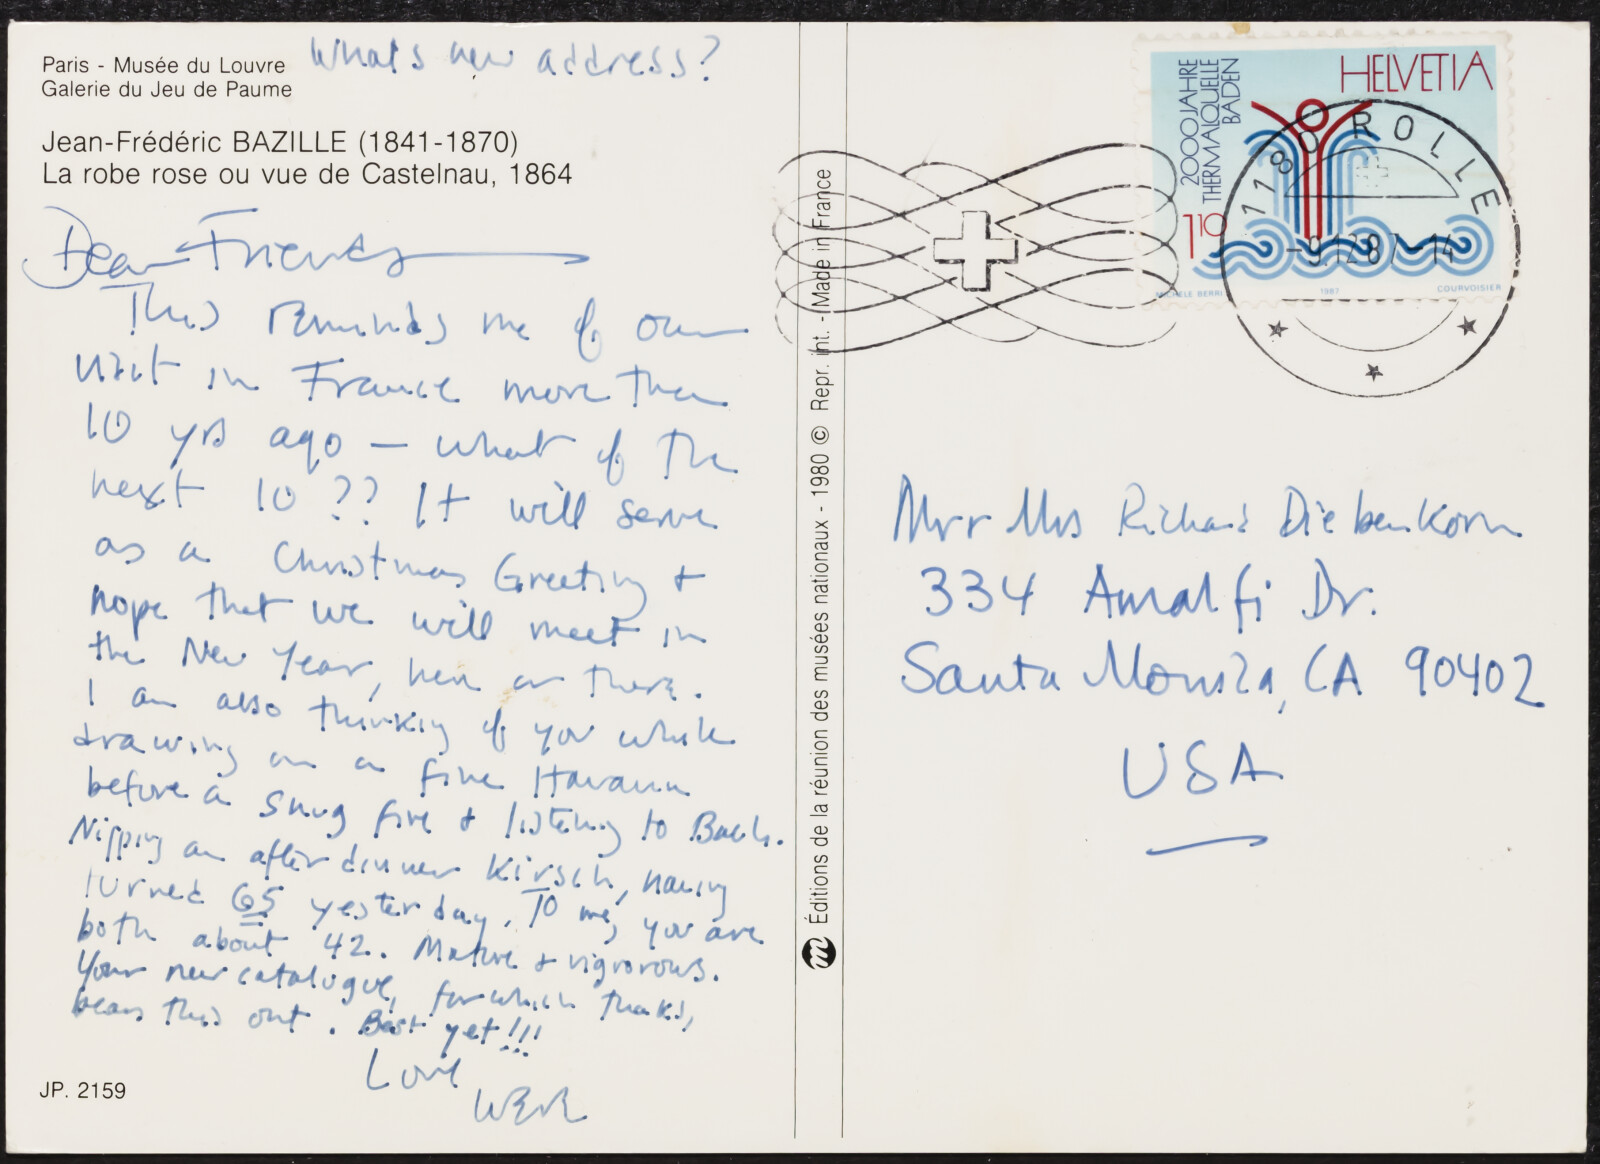 What's new address?
Paris - Musée du Louvre
Galerie du Jeu de Paume
Jean-Frédéric BAZILLE (1841-1870)
La robe rose ou vue de Castelnau, 1864
Dear Friends
This reminds me of our
visit in France more than
10 yrs ago — what of the
next 10 ?? It will serve
as a Christmas Greeting +
hope that we will meet in
the New Year, here or there.
I am also thinking of you while
drawing on a fine Havana
before a snug fire + listening to Bach.
Nipping an after dinner Kirsch, having
turned 65 yesterday. To me, you are
both about 42. Mature + vigorous.
Your new catalogue, for which thanks,
bears this out. Best yet!!!
Love
JP. 2159
Éditions de la réunion des musées nationaux - 1980 © Repr. int. - Made in France
2000 JAHRE
THERMALQUELLE
BADEN
HELVETIA
110
MICHELE BERRI
1987
COURVOISIER
1180 ROLLE
-9.12.87-14
Mr + Mrs Richard Diebenkorn
334 Amalfi Dr.
Santa Monica, CA 90402
USA